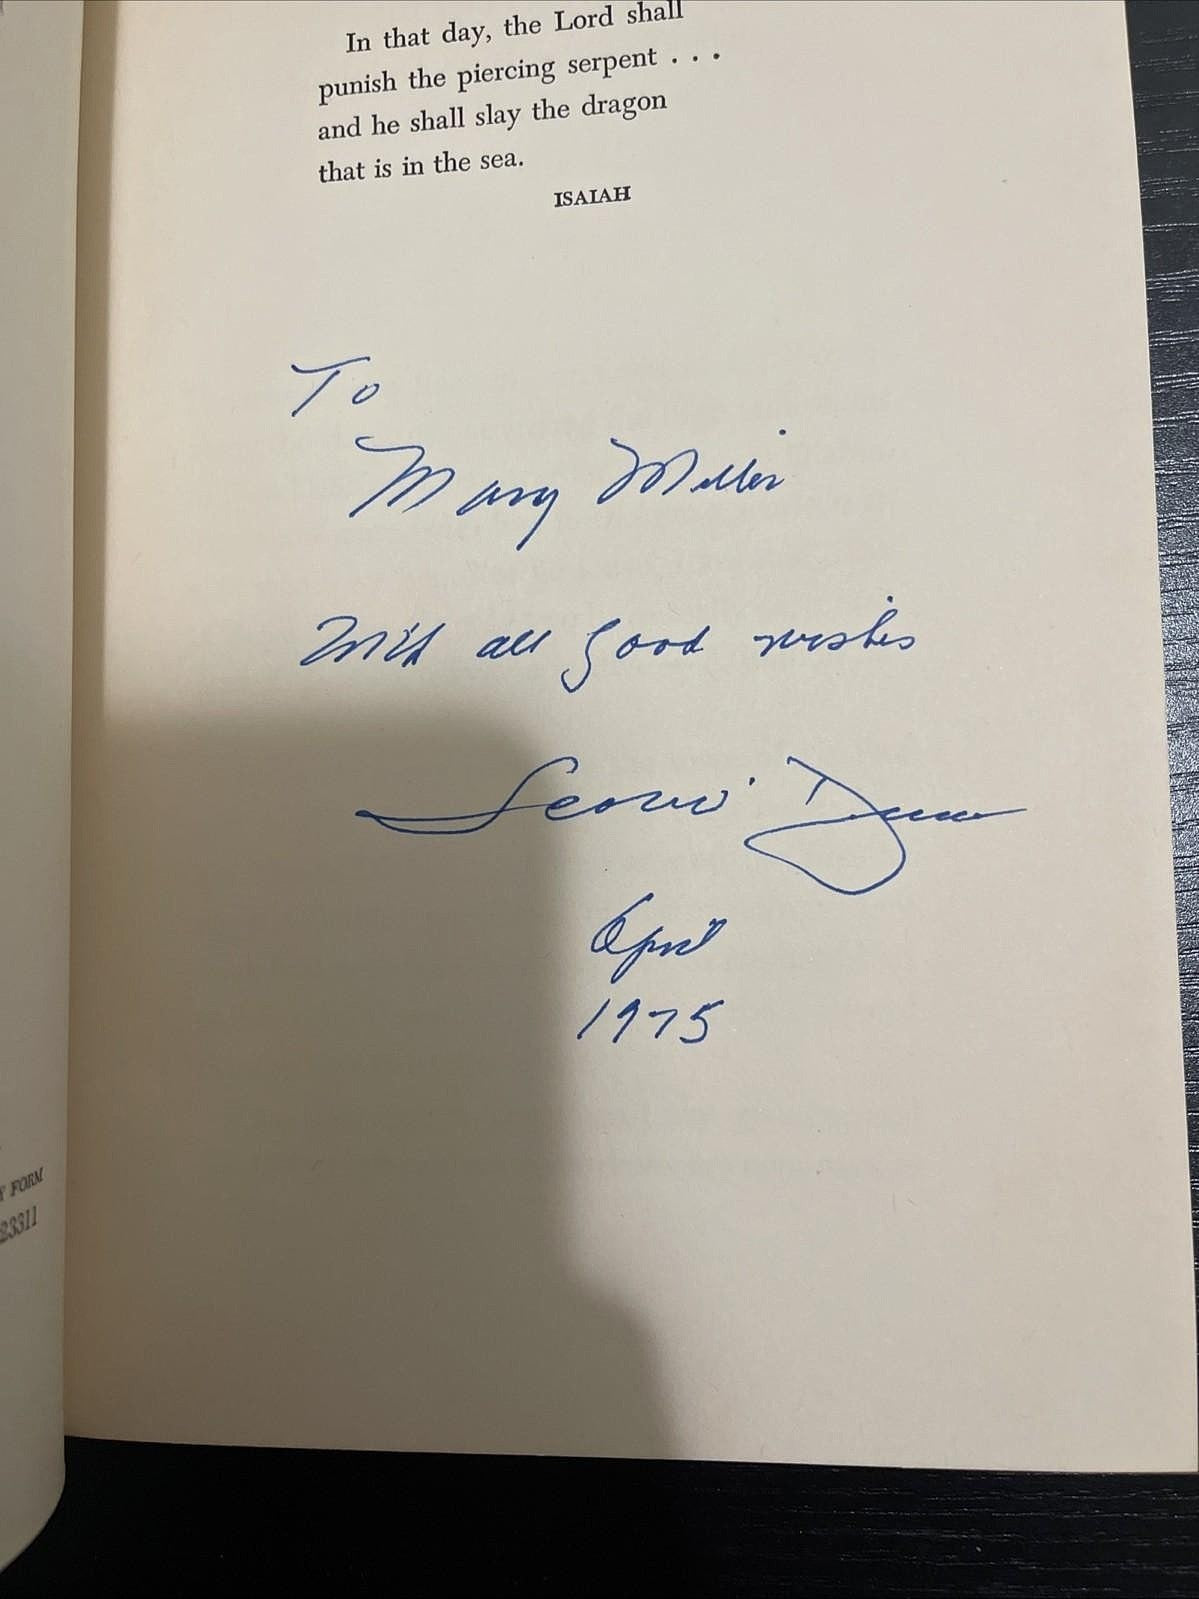 Y FORM
23311
In that day, the Lord shall
punish the piercing serpent . . .
and he shall slay the dragon
that is in the sea.
ISAIAH
To
Mary Miller
With all good wishes
April
1975